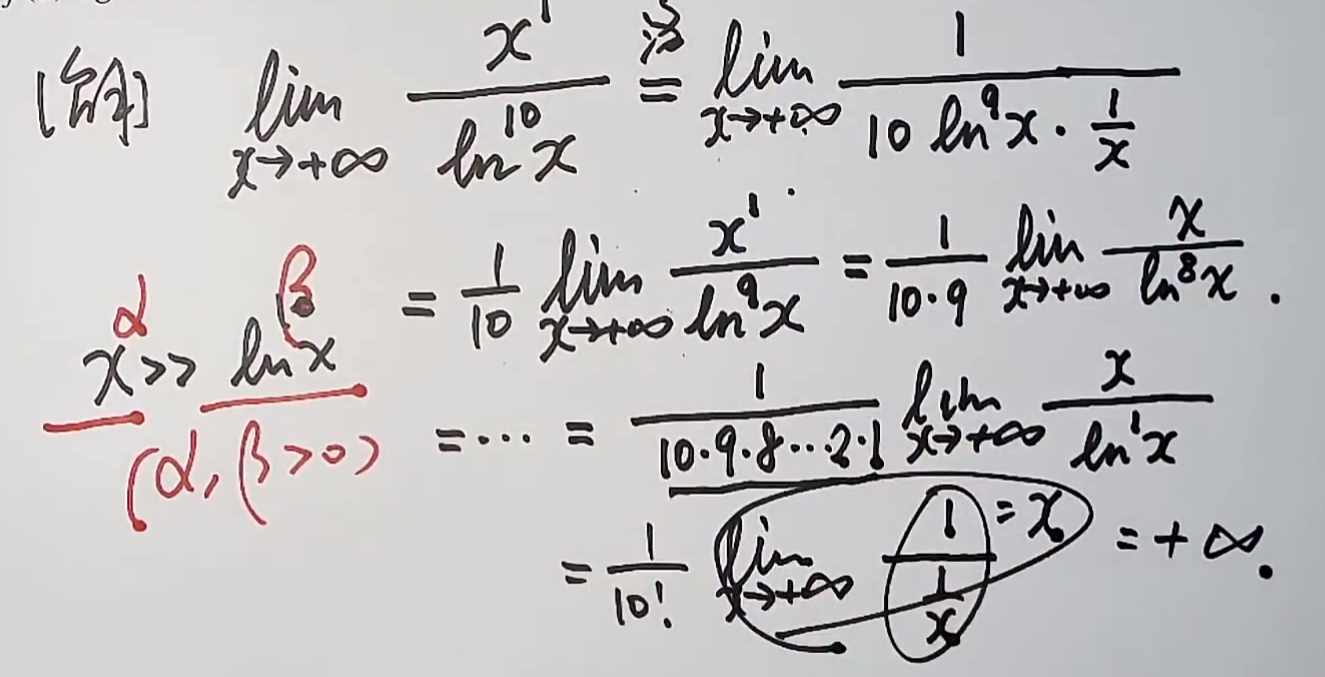 [解] lim x→+∞ x¹/ln¹⁰x 洛= lim x→+∞ 1/(10 ln⁹x · 1/x)
= 1/10 lim x→+∞ x¹/ln⁹x = 1/(10·9) lim x→+∞ x/ln⁸x .
x^α >> ln^β x
(α, β>0)
=⋯ = 1/(10·9·8⋯2·1) lim x→+∞ x/ln¹x
= 1/10! lim x→+∞ 1/(1/x) = x = +∞.